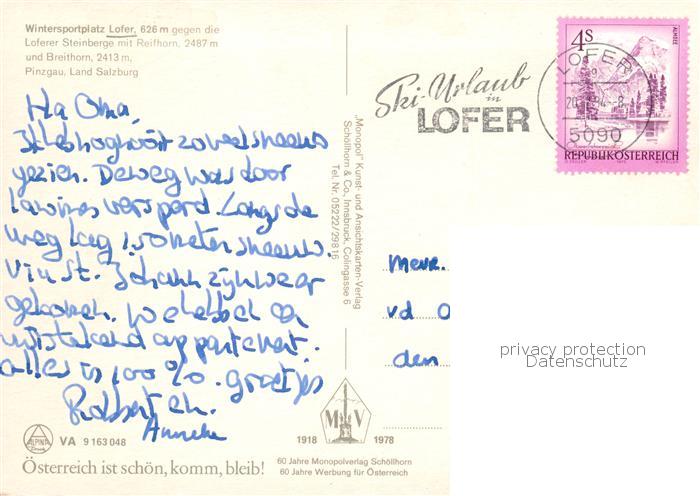 Wintersportplatz Lofer, 626 m gegen die
Loferer Steinberge mit Reifhorn, 2487 m
und Breithorn, 2413 m,
Pinzgau, Land Salzburg
Ha Oma,
Ik heb nog nooit zoveel sneeuw
gezien. De weg was door
lawines versperd. Langs de
weg lag 1.50 meter sneeuw.
Via St. Johann zijn we er
gekomen. We hebben een
uitstekend appartement.
alles is 100%. groetjes
Robbert en.
Anneke
ALPINA
VA 9 163 048
Österreich ist schön, komm, bleib!
„Monopol" Kunst- und Ansichtskarten-Verlag
Schöllhorn & Co, Innsbruck, Colingasse 6
Tel. Nr. 05222/29816
1918 MV 1978
60 Jahre Monopolverlag Schöllhorn
60 Jahre Werbung für Österreich
Ski-Urlaub
in
LOFER
LOFER
5090
4S
ALMSEE
REPUBLIK ÖSTERREICH
Mevr.
vd
den
privacy protection
Datenschutz